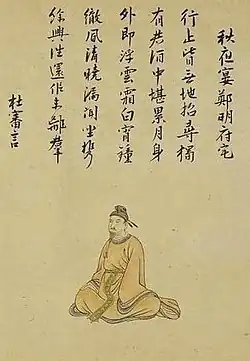 秋夜宴鄭明府宅
行止皆無地招尋獨
有君酒中堪累月身
外即浮雲霜白宵鐘
徹風清曉漏聞坐携
餘興往還似未離群
杜審言